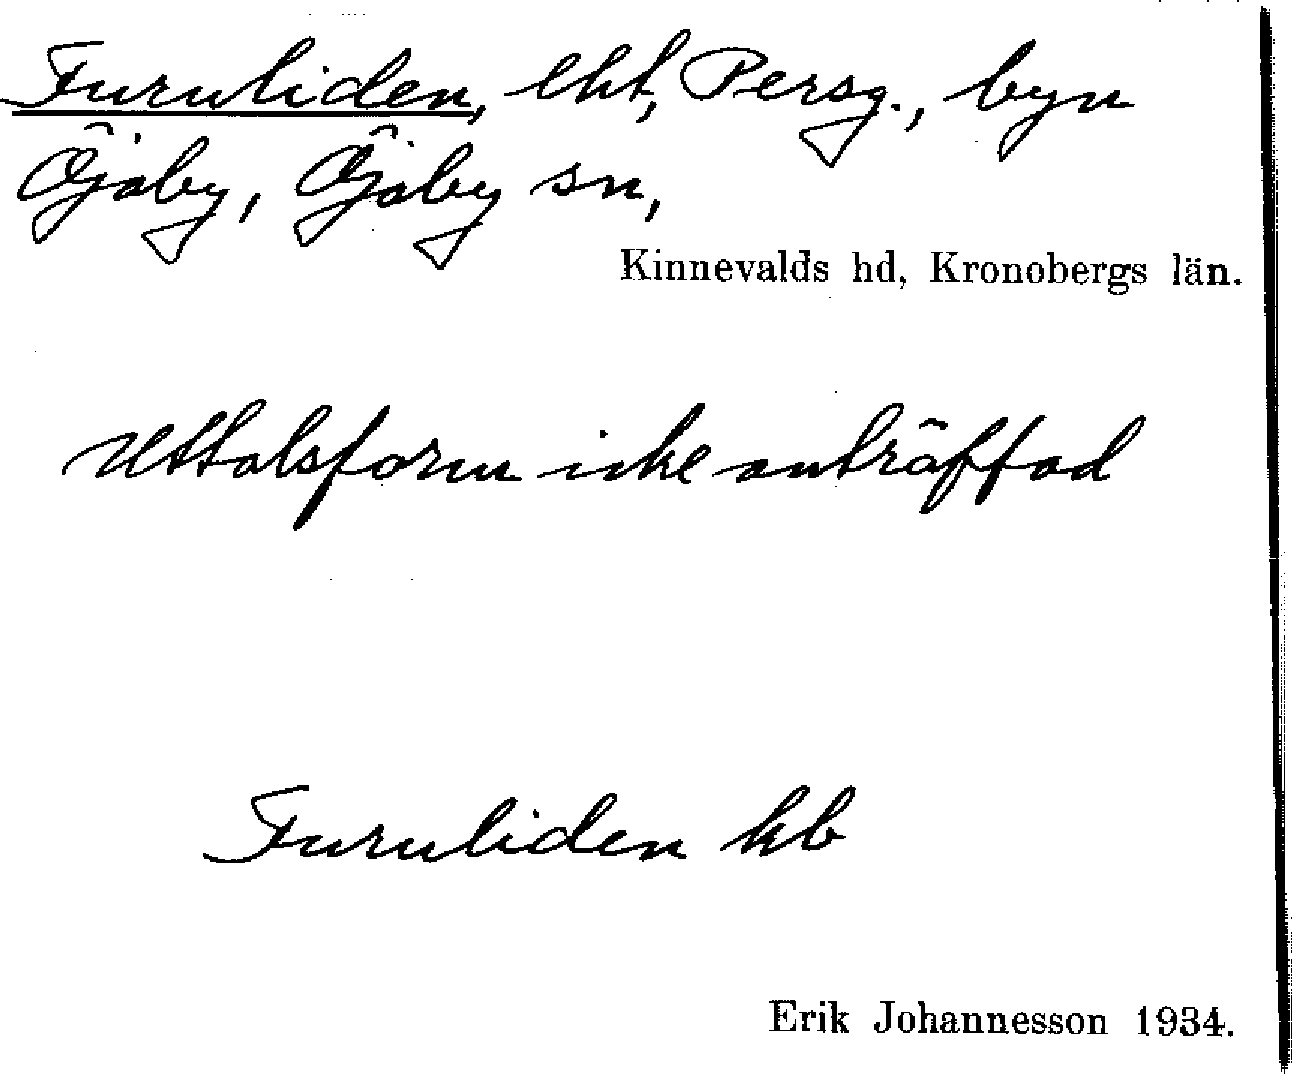 Furuliden, lht, Persg., byn
Öjaby, Öjaby sn,
Kinnevalds hd, Kronobergs län.
Uttalsform icke anträffad
Furuliden kb
Erik Johannesson 1934.